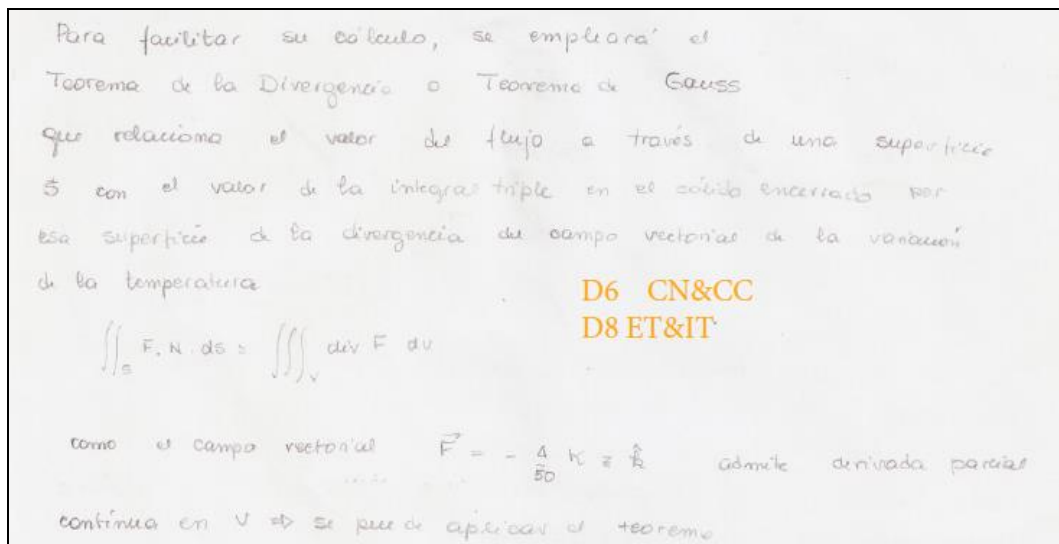 Para facilitar su cálculo, se empleará el
Teorema de la Divergencia o Teorema de Gauss
que relaciona el valor del flujo a través de una superficie
S con el valor de la integral triple en el sólido encerrado por
esa superficie de la divergencia del campo vectorial de la variación
de la temperatura
D6 CN&CC
D8 ET&IT
∬_S F̄. N. ds = ∭_V div F̄ dv
como el campo vectorial F⃗ = - 4/50 K z k̂ admite derivada parcial
contínua en V ⇒ se puede aplicar el teorema